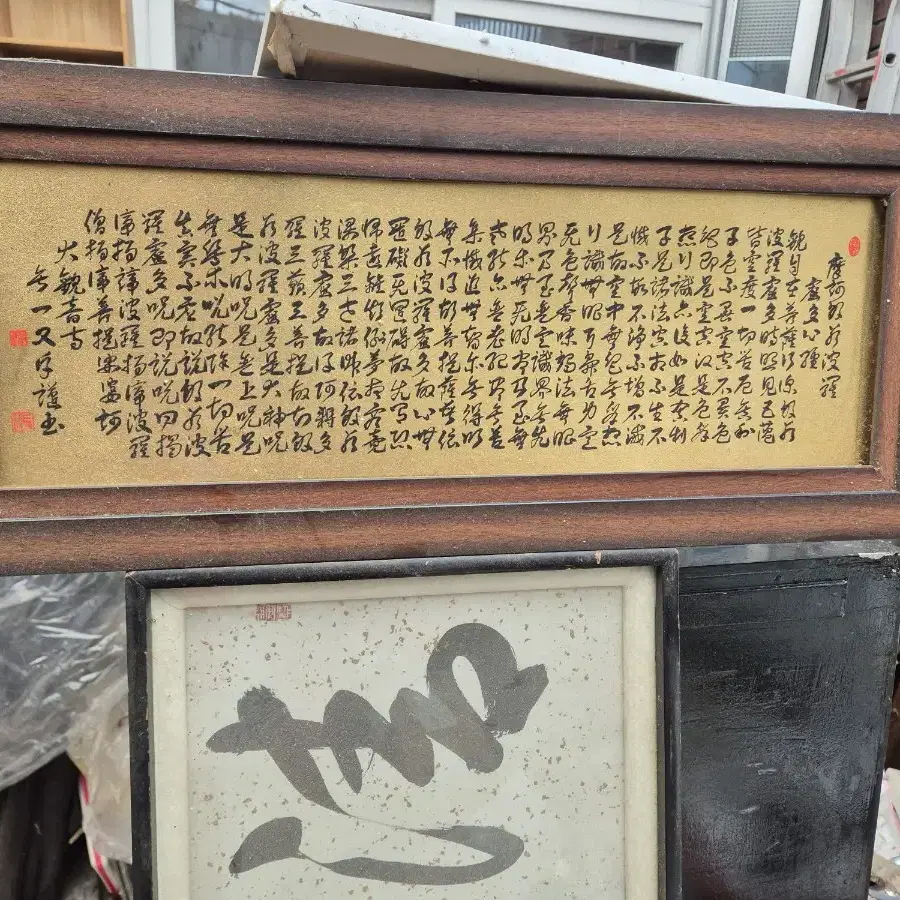 摩訶般若波羅
蜜多心經
觀自在菩薩行深般若
波羅蜜多時照見五蘊
皆空度一切苦厄舍利
子色不異空空不異色
色即是空空即是色受
想行識亦復如是舍利
子是諸法空相不生不
滅不垢不淨不增不減
是故空中無色無受想
行識無眼耳鼻舌身意
無色聲香味觸法無眼
界乃至無意識界無無
明亦無無明盡乃至無
老死亦無老死盡無苦
集滅道無智亦無得以
無所得故菩提薩埵依
般若波羅蜜多故心無
罣礙無罣礙故無有恐
怖遠離顚倒夢想究竟
涅槃三世諸佛依般若
波羅蜜多故得阿耨多
羅三藐三菩提故知般
若波羅蜜多是大神呪
是大明呪是無上呪是
無等等呪能除一切苦
眞實不虛故說般若波
羅蜜多呪即說呪曰揭
諦揭諦波羅揭諦波羅
僧揭諦菩提娑婆訶
觀音寺
謹書